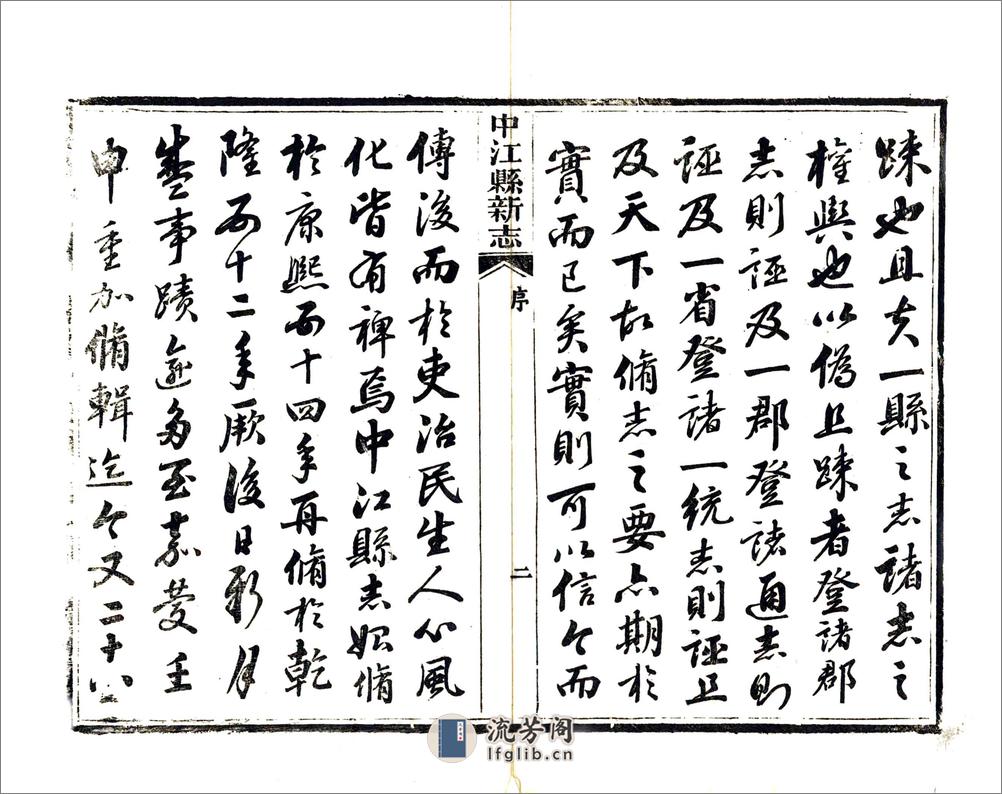 踈也且夫一縣之志諸志之
權輿也以偽且踈者登諸郡
志則誣及一郡登諸通志則
誣及一省登諸一統志則誣且
及天下故脩志之要亦期於
實而已矣實則可以信今而
中江縣新志
序
二
傳後而於吏治民生人心風
化皆有裨焉中江縣志始脩
於康熙五十四年再脩於乾
隆五十二年厥後日新月
盛事蹟遞多至嘉慶壬
申重加脩輯迄今又二十
流芳阁
lfglib.cn